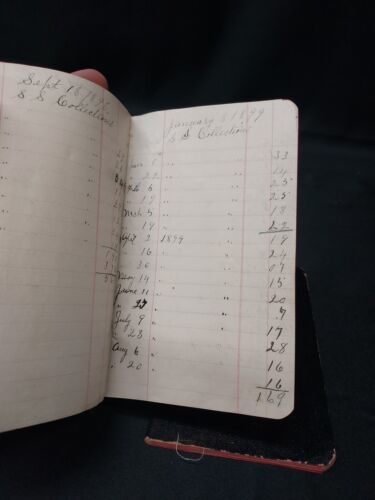 Sept 18 189
S S Collections
January 8 1899
S S Collection
" " 33
" 22 " " 14
Feb 6 " " 25
" 19 " " 25
March 5 " " 18
" 19 " " 22
2 1899 " 19
" 16 " 24
" 30 " 07
May 14 " 15
June 11 " " 20
" 27 " 7
July 9 " 17
" 23 " 28
Aug 6 " 16
" 20 " 16
169